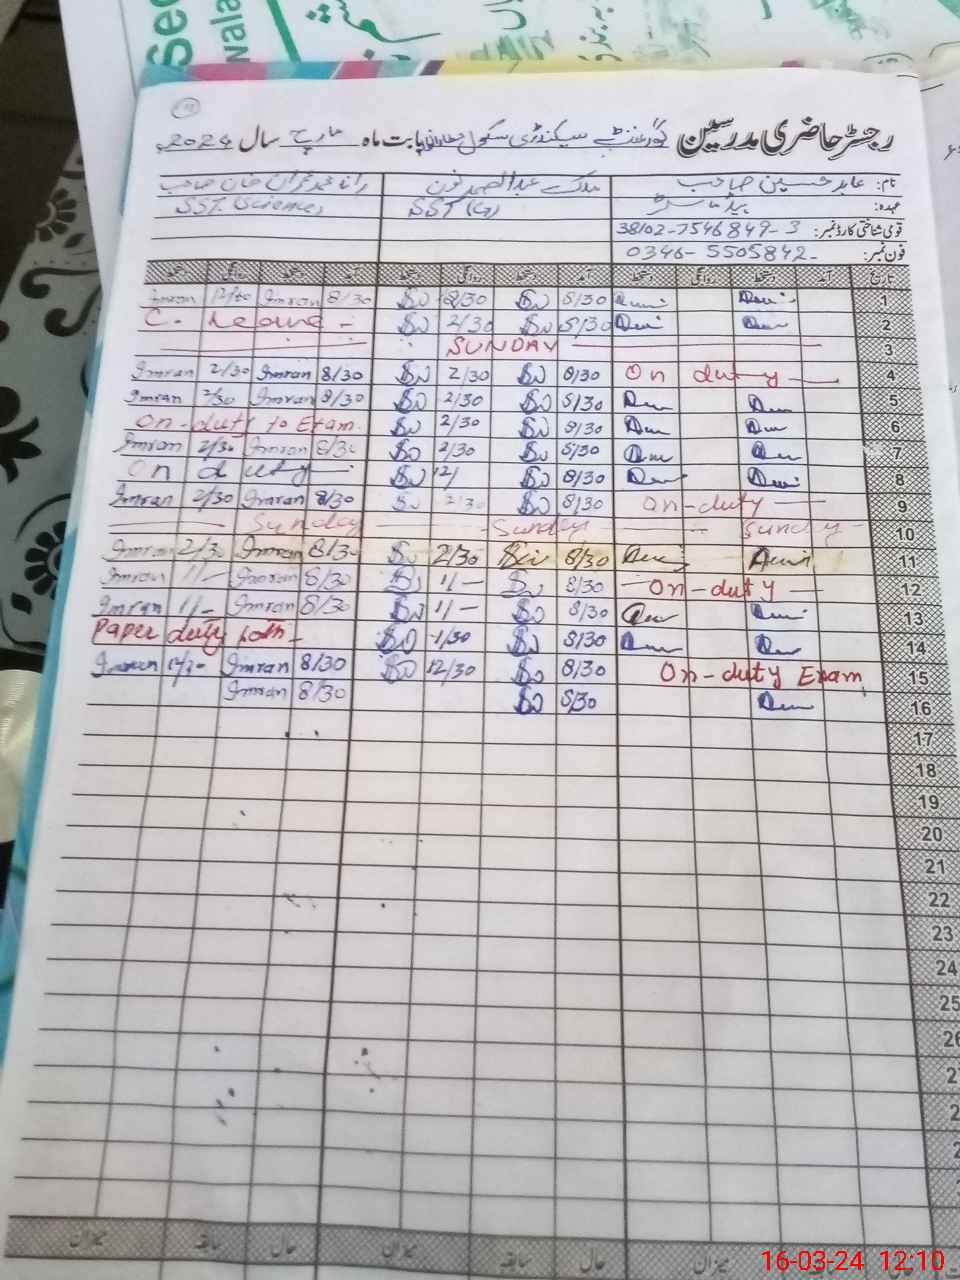 رجسٹر حاضری مدرسین گورنمنٹ سیکنڈری سکول بابت ماہ مارچ سال 2024ء
نام: عابد حسین صاحب ملک عبدالصمد نون رانا محمد عمران خان صاحب
عہدہ: ہیڈ ماسٹر SST (G) SST (Science)
قومی شناختی کارڈ نمبر: 38102-7546849-3
فون نمبر: 0346-5505842
تاریخ آمد دستخط روانگی دستخط آمد دستخط روانگی دستخط آمد دستخط روانگی دستخط
1 8/30 8/30 8/30 Imran 12/30 Imran
2 8/30 2/30 C. Leave
3 SUNDAY
4 On duty 8/30 2/30 8/30 Imran 2/30 Imran
5 8/30 2/30 8/30 Imran 2/30 Imran
6 8/30 2/30 On-duty to Exam.
7 8/30 2/30 8/30 Imran 2/30 Imran
8 8/30 12/ On duty
9 On-duty 8/30 2/30 8/30 Imran 2/30 Imran
10 Sunday Sunday Sunday
11 8/30 2/30 8/30 Imran 2/30 Imran
12 On-duty 8/30 1/- 8/30 Imran 1/- Imran
13 8/30 1/- 8/30 Imran 1/- Imran
14 8/30 1/30 Paper duty 10th
15 On-duty Exam 8/30 12/30 8/30 Imran Imran
16 8/30 8/30 Imran
17
18
19
20
21
22
23
24
25
26
میزان سابقہ حال میزان سابقہ حال میزان
16-03-24 12:10